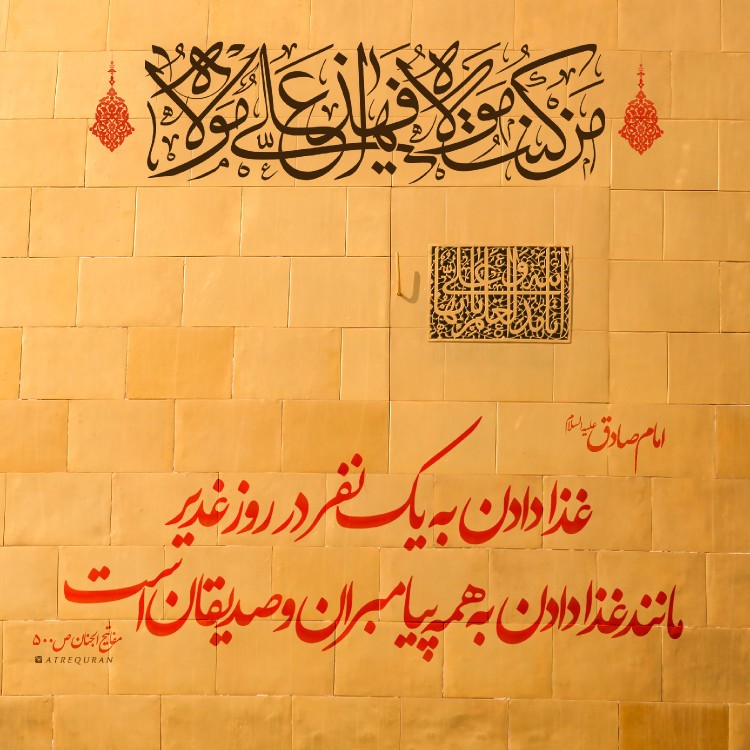 من کنت مولاه فهذا علی مولاه
امام صادق علیه السلام
غذا دادن به یک نفر در روز غدیر
مانند غذا دادن به همه پیامبران و صدیقان است
مفاتیح الجنان ص ۵۰۰
ATREQURAN